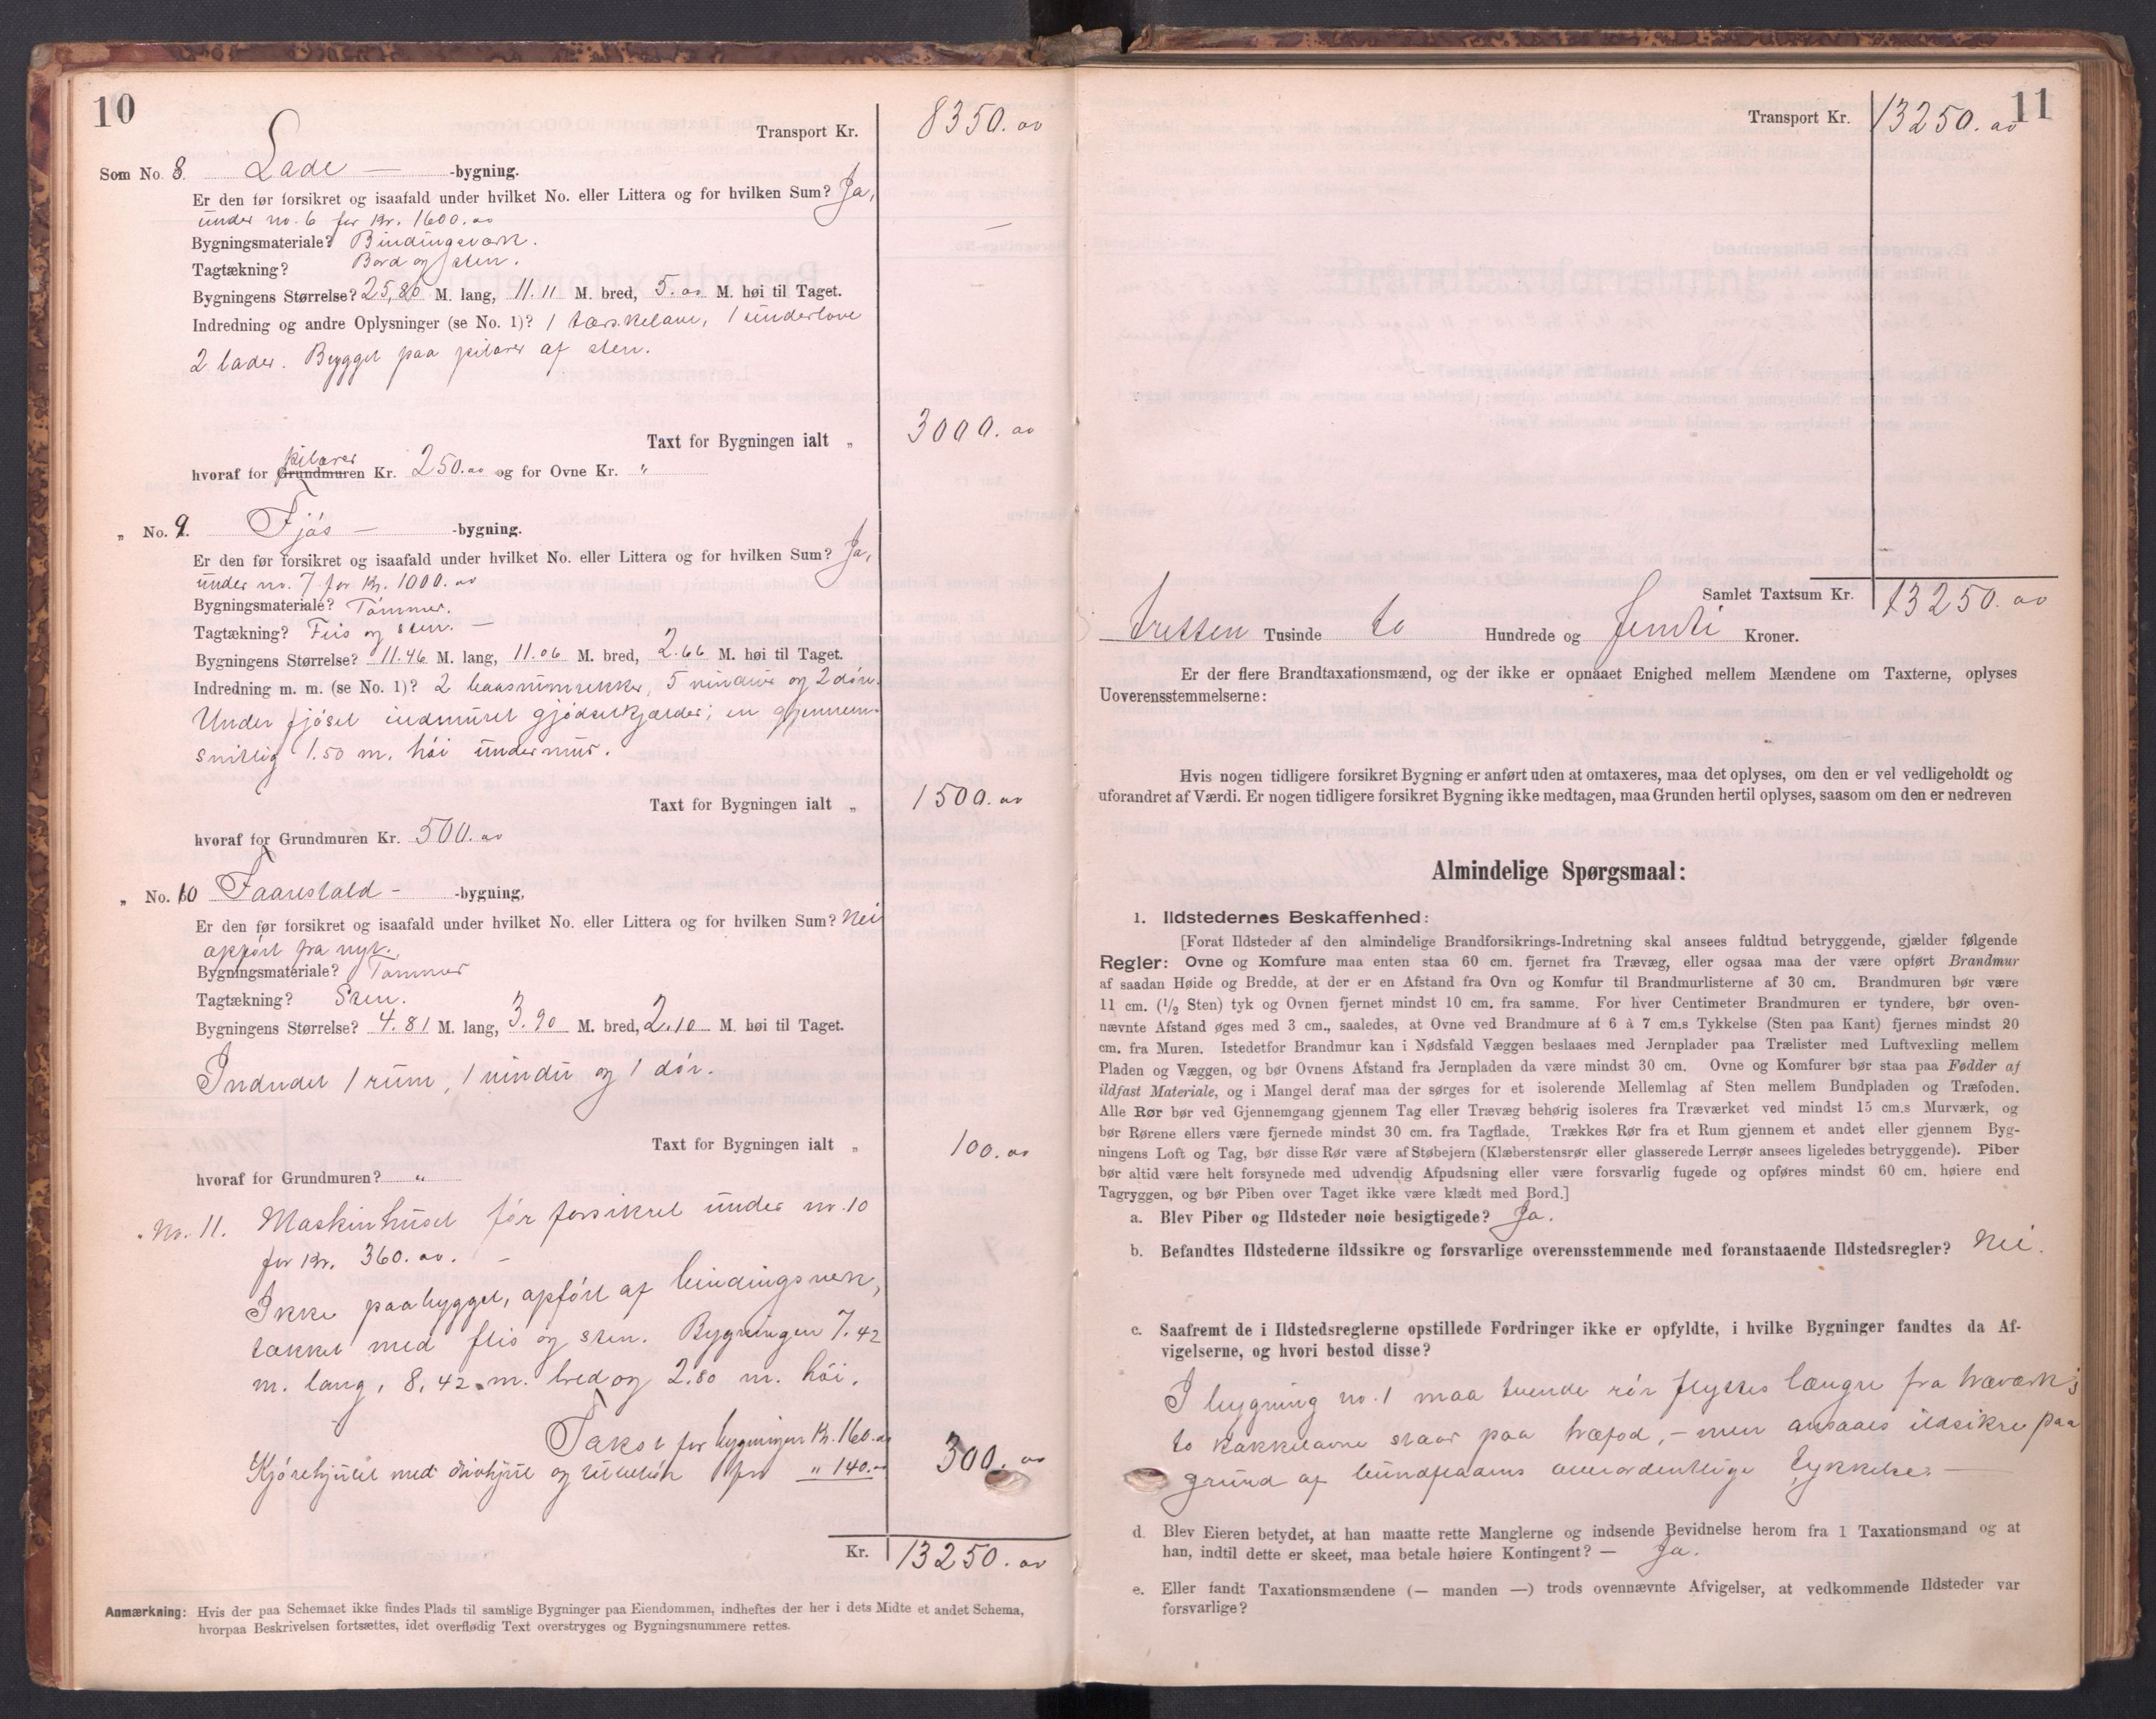 10
Transport Kr. 8350.00
Som No. 8. Lade — -bygning.
Er den før forsikret og isaafald under hvilket No. eller Littera og for hvilken Sum? Ja,
under no. 6 for Kr. 1600.00
Bygningsmateriale? Bindingsværk.
Tagtækning? Bord og sten.
Bygningens Størrelse? 25,80 M. lang, 11.11 M. bred, 5.00 M. høi til Taget.
Indredning og andre Oplysninger (se No. 1)? 1 tærskelaave, 1 underlove
2 lader. Bygget paa pilarer af sten.
Taxt for Bygningen ialt „ 3000.00
pilarer
hvoraf for Grundmuren Kr. 250.00 og for Ovne Kr. "
„ No. 9. Fjøs — -bygning.
Er den før forsikret og isaafald under hvilket No. eller Littera og for hvilken Sum? Ja,
under no. 7 for Kr. 1000.00
Bygningsmateriale? Tømmer.
Tagtækning? Flis og sten. —
Bygningens Størrelse? 11.46 M. lang, 11.06 M. bred, 2.66 M. høi til Taget.
Indredning m. m. (se No. 1)? 2 baasrumrekker, 5 vinduer og 2 døre.
Under fjøset indmuret gjødselkjælder; en gjennem-
snitlig 1.50 m. høi undermur.
Taxt for Bygningen ialt „ 1500.00
hvoraf for Grundmuren Kr. 500.00
„ No. 10 Faarestald - -bygning,
Er den før forsikret og isaafald under hvilket No. eller Littera og for hvilken Sum? Nei
opført fra nyt.
Bygningsmateriale? Tømmer
Tagtækning? Sten.
Bygningens Størrelse? 4.81 M. lang, 3.90 M. bred, 2.10 M. høi til Taget.
Indredet 1 rum, 1 vindu og 1 dør.
Taxt for Bygningen ialt „ 100.00
hvoraf for Grundmuren? "
No. 11. Maskinhuset før forsikret under no. 10
for Kr. 360.00. —
Ikke paabygget, opført af bindingsverk,
tækket med flis og sten. Bygningen 7.42
m. lang, 8,42 m. bred og 2.80 m. høi.
Takst for bygningen Kr. 160.00
Kjørehjulet med drivhjul og tilbehør for " 140.00 300.00
Kr. 13250.00
Anmærkning: Hvis der paa Schemaet ikke findes Plads til samtlige Bygninger paa Eiendommen, indheftes der her i dets Midte et andet Schema,
hvorpaa Beskrivelsen fortsættes, idet overflødig Text overstryges og Bygningsnummere rettes.
11
Transport Kr. 13250.00
Samlet Taxtsum Kr. 13250.00
tretten Tusinde to Hundrede og femti Kroner.
Er der flere Brandtaxationsmænd, og der ikke er opnaaet Enighed mellem Mændene om Taxterne, oplyses
Uoverensstemmelserne:
Hvis nogen tidligere forsikret Bygning er anført uden at omtaxeres, maa det oplyses, om den er vel vedligeholdt og
uforandret af Værdi. Er nogen tidligere forsikret Bygning ikke medtagen, maa Grunden hertil oplyses, saasom om den er nedreven
Almindelige Spørgsmaal:
1. Ildstedernes Beskaffenhed:
[Forat Ildsteder af den almindelige Brandforsikrings-Indretning skal ansees fuldtud betryggende, gjælder følgende
Regler: Ovne og Komfure maa enten staa 60 cm. fjernet fra Trævæg, eller ogsaa maa der være opført Brandmur
af saadan Høide og Bredde, at der er en Afstand fra Ovn og Komfur til Brandmurlisterne af 30 cm. Brandmuren bør være
11 cm. (1/2 Sten) tyk og Ovnen fjernet mindst 10 cm. fra samme. For hver Centimeter Brandmuren er tyndere, bør oven-
nævnte Afstand øges med 3 cm., saaledes, at Ovne ved Brandmure af 6 à 7 cm.s Tykkelse (Sten paa Kant) fjernes mindst 20
cm. fra Muren. Istedetfor Brandmur kan i Nødsfald Væggen beslaaes med Jernplader paa Trælister med Luftvexling mellem
Pladen og Væggen, og bør Ovnens Afstand fra Jernpladen da være mindst 30 cm. Ovne og Komfurer bør staa paa Fødder af
ildfast Materiale, og i Mangel deraf maa der sørges for et isolerende Mellemlag af Sten mellem Bundpladen og Træfoden.
Alle Rør bør ved Gjennemgang gjennem Tag eller Trævæg behørig isoleres fra Træværket ved mindst 15 cm.s Murværk, og
bør Rørene ellers være fjernede mindst 30 cm. fra Tagflade. Trækkes Rør fra et Rum gjennem et andet eller gjennem Byg-
ningens Loft og Tag, bør disse Rør være af Støbejern (Klæberstensrør eller glasserede Lerrør ansees ligeledes betryggende). Piber
bør altid være helt forsynede med udvendig Afpudsning eller være forsvarlig fugede og opføres mindst 60 cm. høiere end
Tagryggen, og bør Piben over Taget ikke være klædt med Bord.]
a. Blev Piber og Ildsteder nøie besigtigede? Ja.
b. Befandtes Ildstederne ildssikre og forsvarlige overensstemmende med foranstaaende Ildstedsregler? Nei.
c. Saafremt de i Ildstedsreglerne opstillede Fordringer ikke er opfyldte, i hvilke Bygninger fandtes da Af-
vigelserne, og hvori bestod disse?
I bygning no. 1 maa tvende rør flyttes længre fra træværk;
to kakkelovne staar paa træfod, — men ansaaes ildsikre paa
grund af bundpladens overordentlige tykkelse. —
d. Blev Eieren betydet, at han maatte rette Manglerne og indsende Bevidnelse herom fra 1 Taxationsmand og at
han, indtil dette er skeet, maa betale høiere Kontingent? — Ja.
e. Eller fandt Taxationsmændene (— manden —) trods ovennævnte Afvigelser, at vedkommende Ildsteder var
forsvarlige?